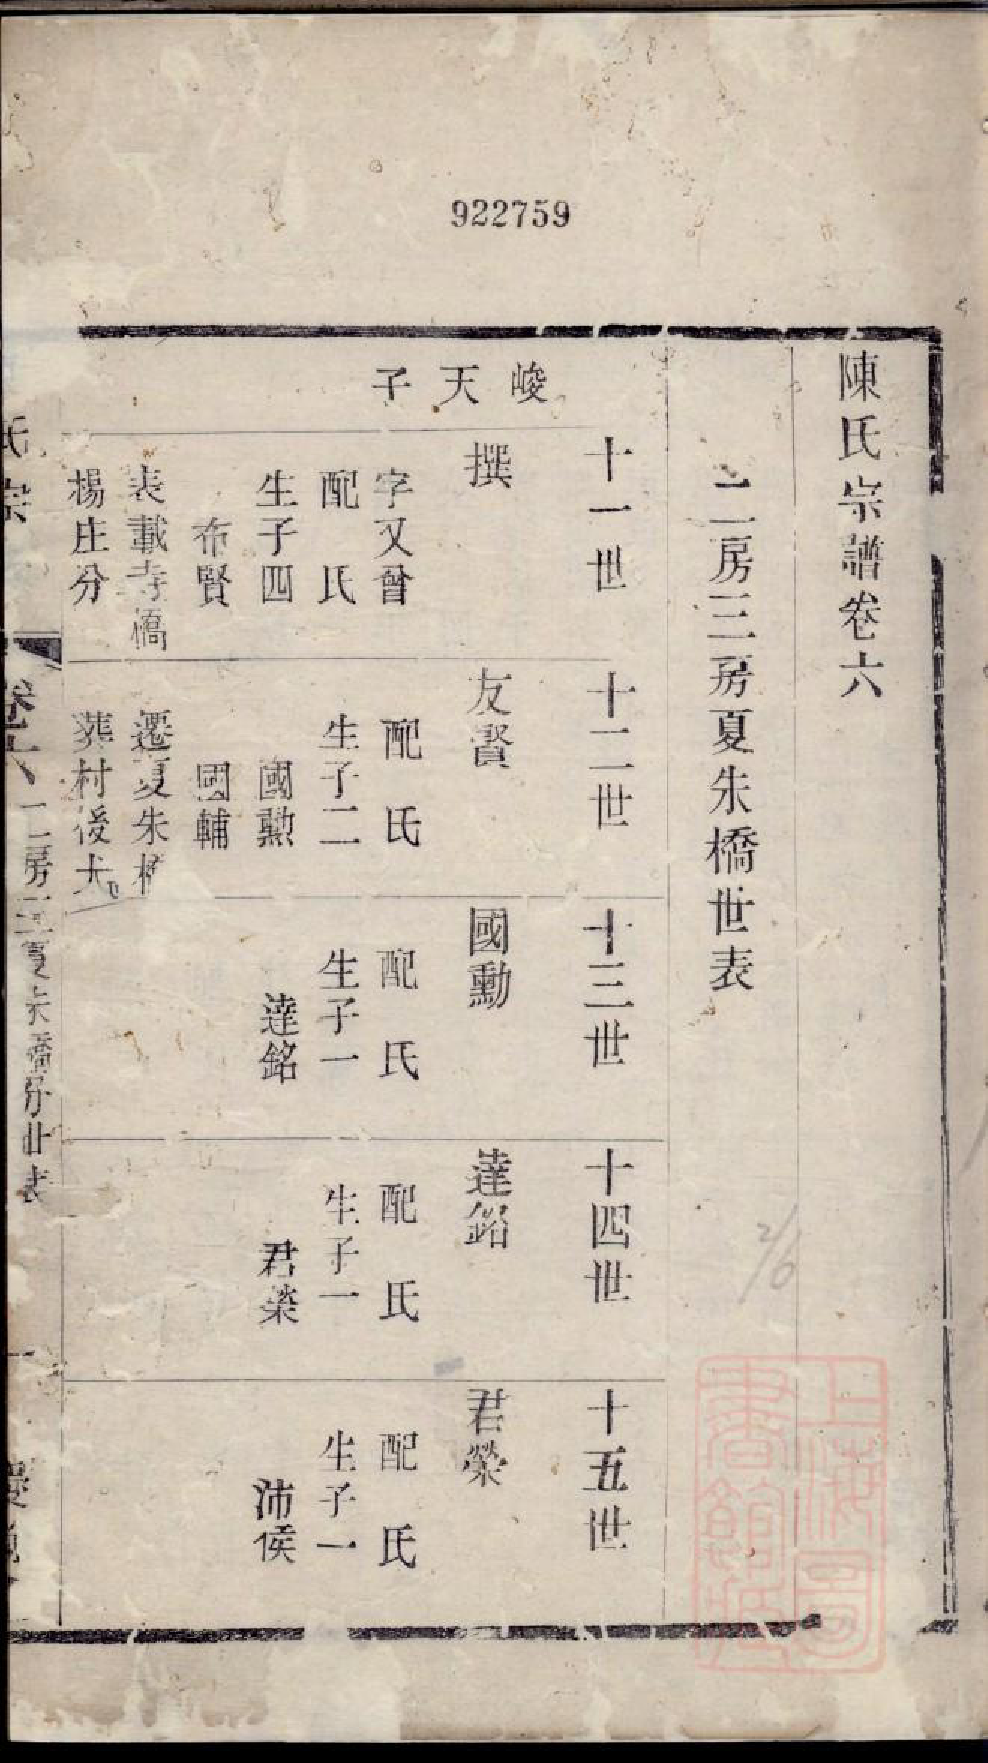 922759
陳氏宗譜卷六
二房三房夏朱橋世表
十一世
十二世
十三世
十四世
十五世
峻天子
撰
字又曾
配 氏
生子四
布賢
表載寺橋
楊庄分
友賢
配 氏
生子二
國勲
國輔
遷夏朱橋
葬村後
國勳
配 氏
生子一
達銘
達銘
配 氏
生子一
君榮
君榮
配 氏
生子一
沛侯
氏宗
卷六
二房三夏朱橋分世表
一
上海圖書館藏
2/6